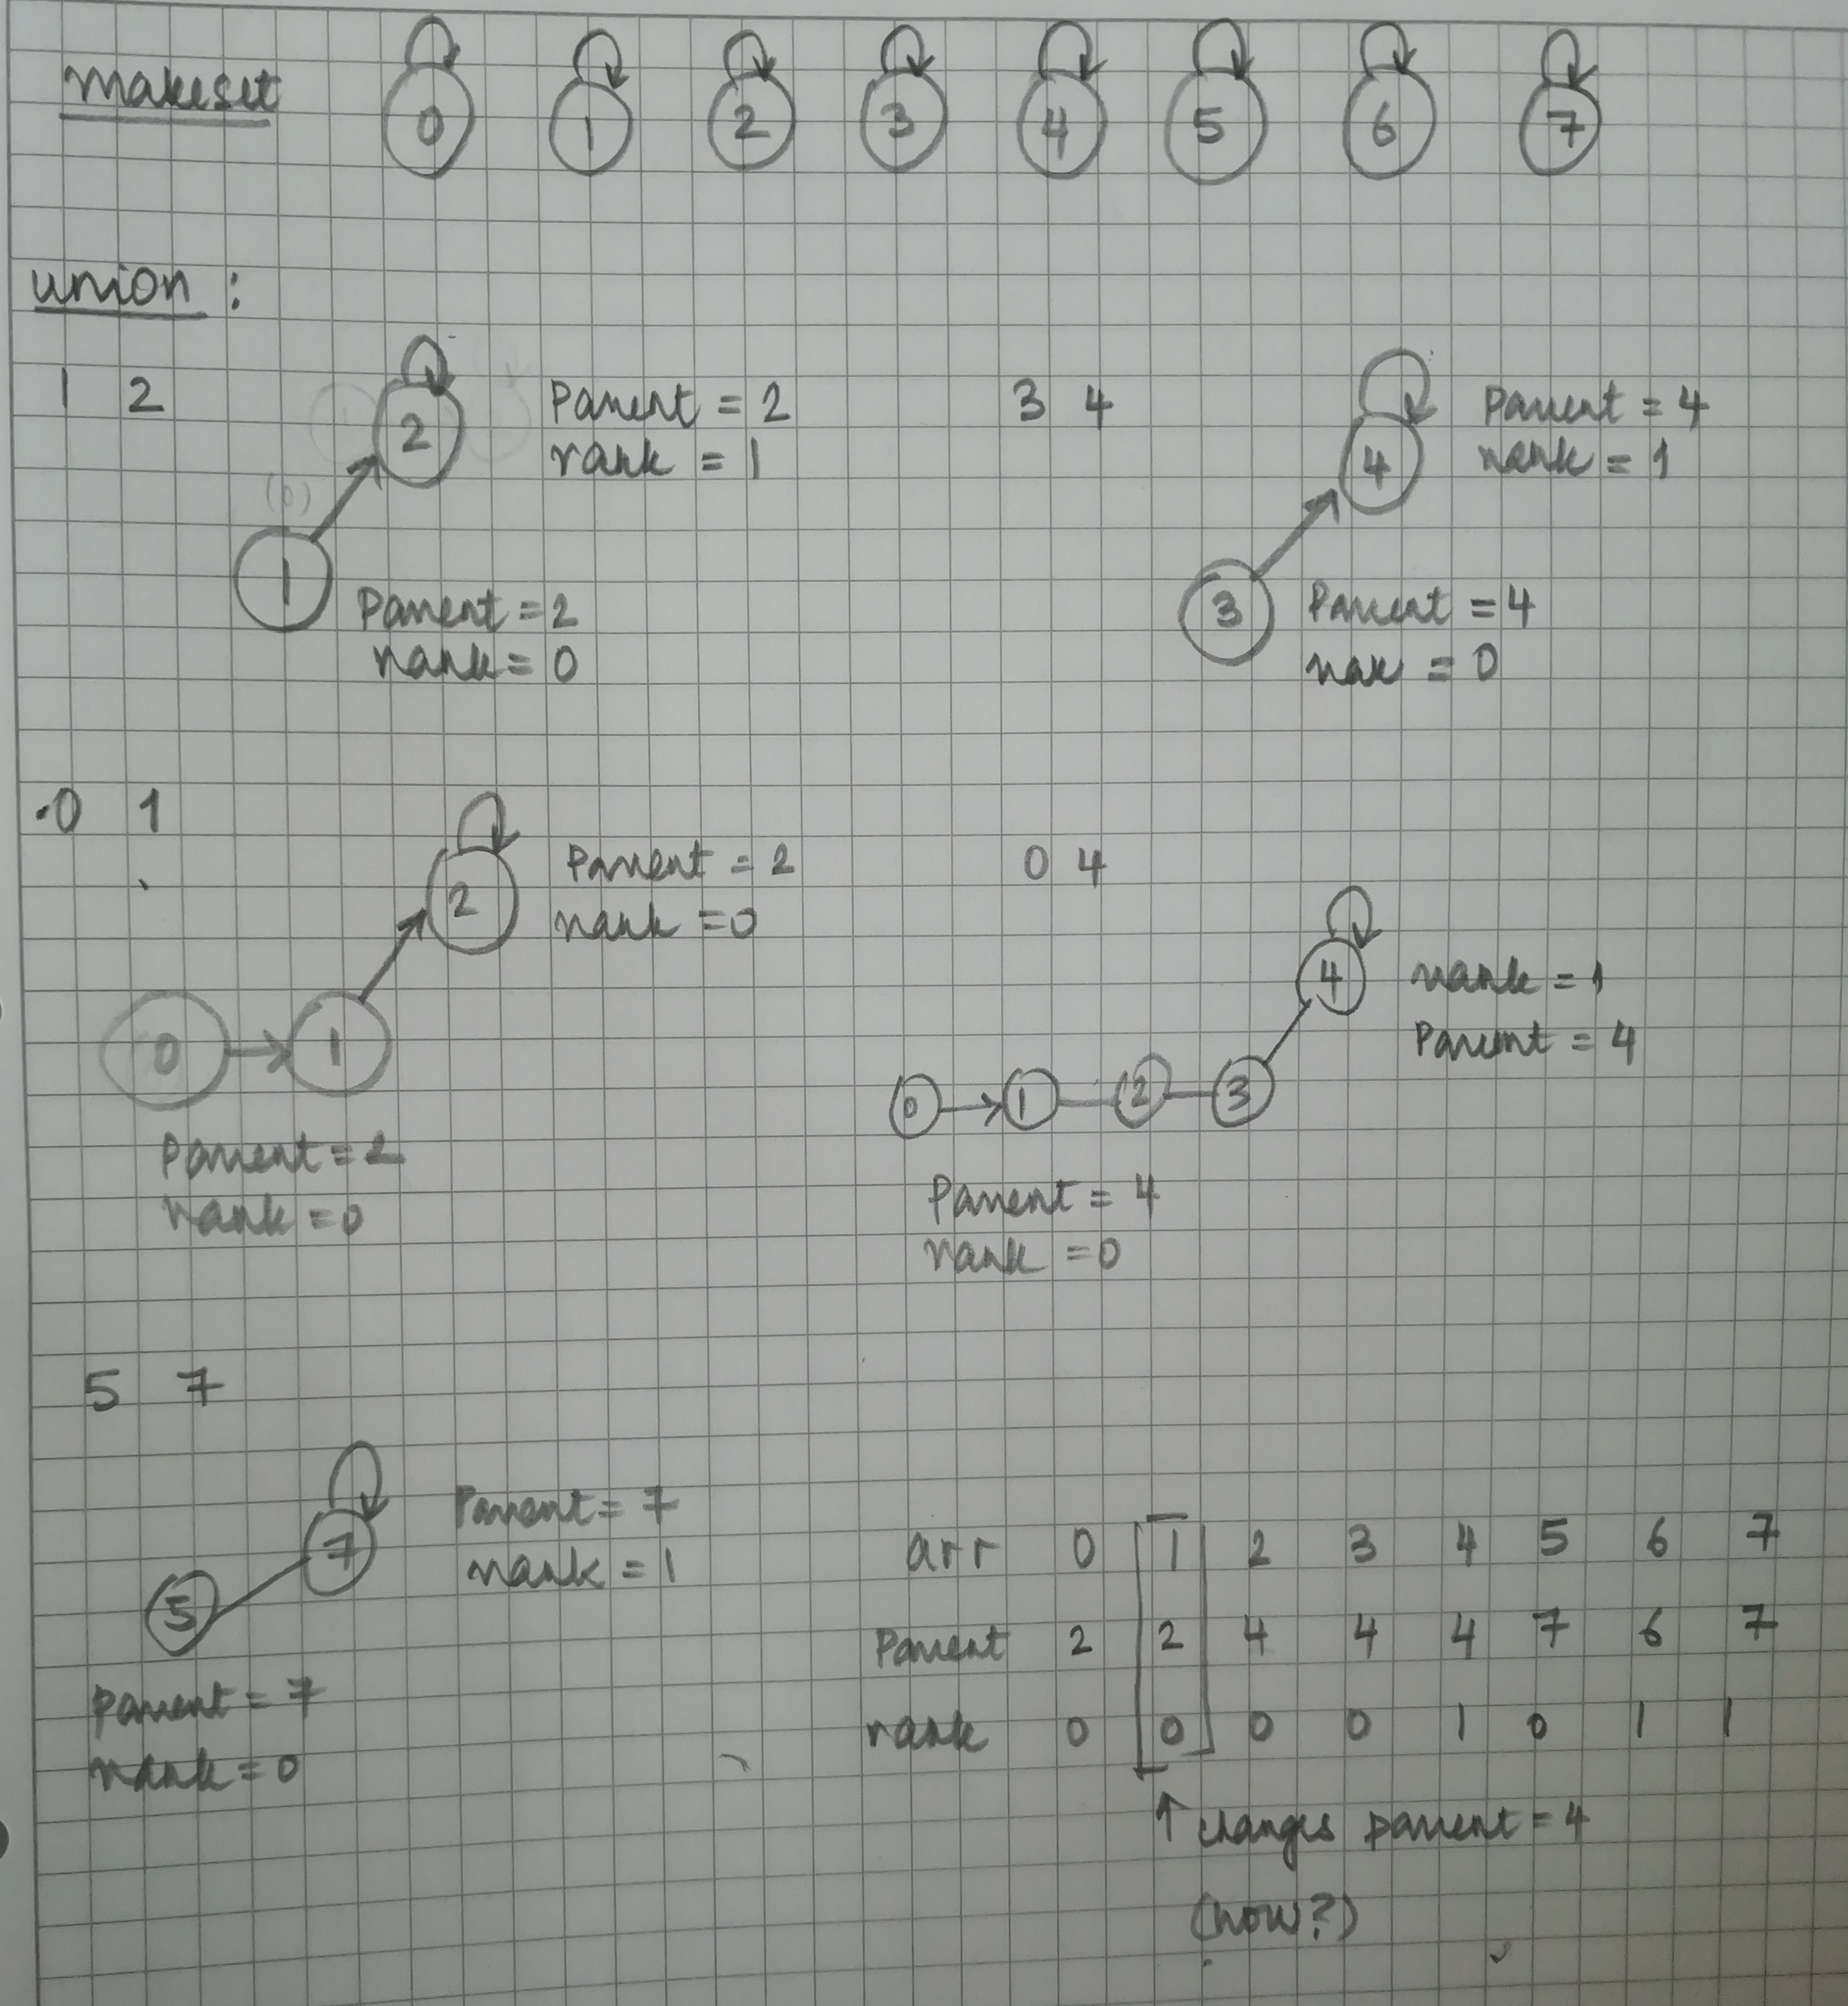 makeset 0 1 2 3 4 5 6 7
union :
1 2
2
Parent = 2
rank = 1
1
Parent = 2
rank = 0
3 4
4
Parent = 4
rank = 1
3
Parent = 4
rak = 0
0 1
2
Parent = 2
rank = 0
0 1
Parent = 2
rank = 0
0 4
4
rank = 1
Parent = 4
0 1 2 3
Parent = 4
rank = 0
5 7
7
Parent = 7
rank = 1
5
Parent = 7
rank = 0
arr 0 1 2 3 4 5 6 7
Parent 2 2 4 4 4 7 6 7
rank 0 0 0 0 1 0 1 1
↑ changes parent = 4
(how?)